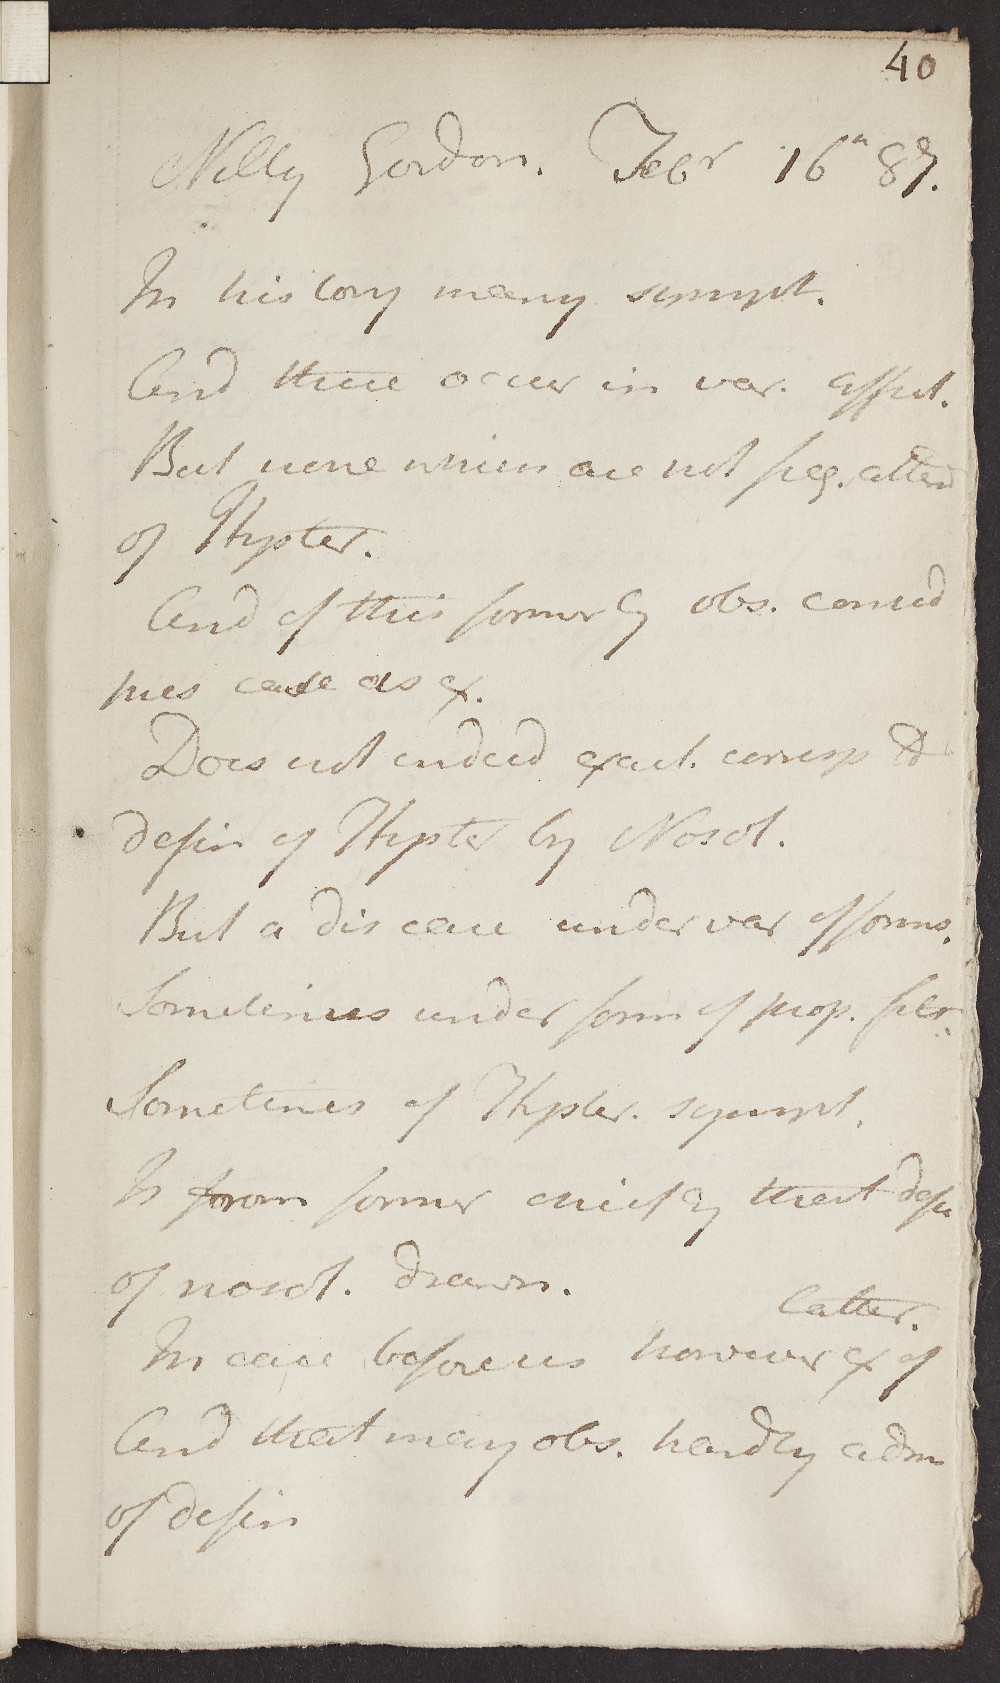 40
Nelly Gordon. Febr 16th 87.
In history many sympt.
And these occur in var. affect.
But none which are not freq. atten
of Hyster.
And of this formerly obs. consid
pres case as ex.
Does not indeed exact. corresp to
defin of Hyster by Nosol.
But a disease under var of forms.
Sometimes under form of prop.
Sometimes of Hyster. sympt.
Is from former chiefly that defin
of nosol. drawn.
latter.
In case before us however ex of
And that many obs. hardly adm
of defin